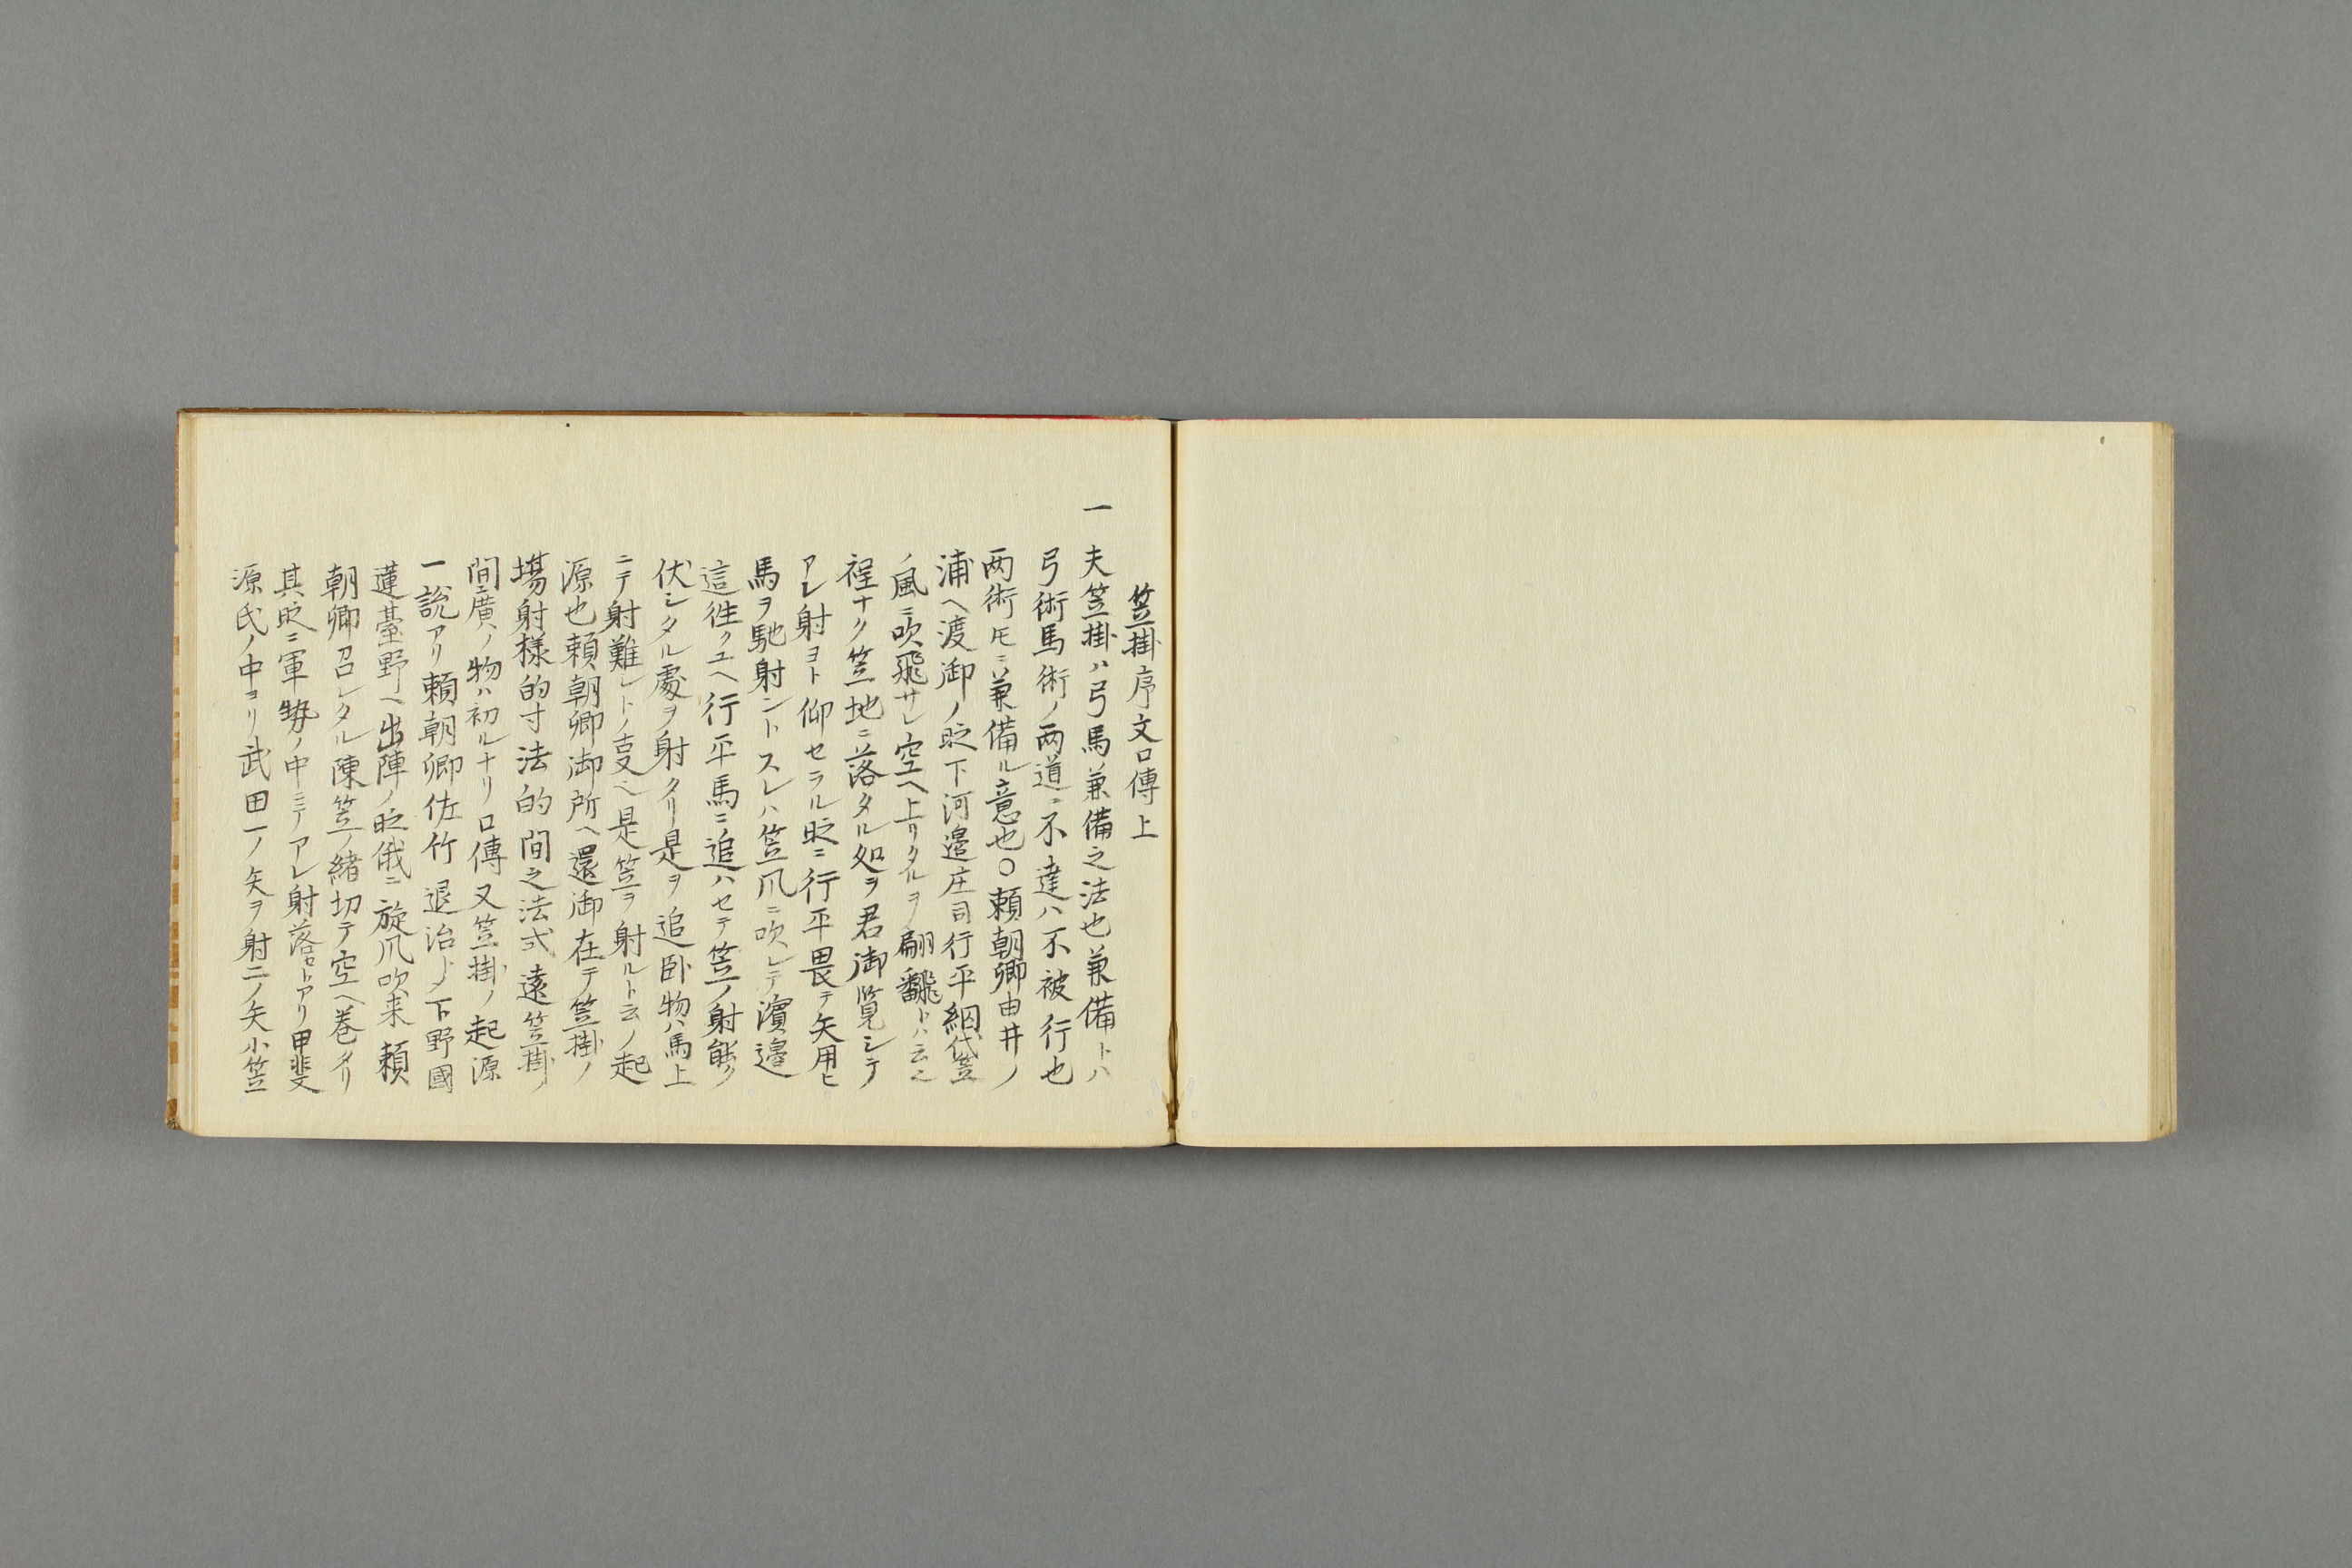 笠掛序文口傳上
一 夫笠掛ハ弓馬兼備之法也兼備トハ
弓術馬術ノ両道ニ不達ハ不被行也
両術𪜈ニ兼備ル意也〇頼朝卿由井ノ
浦ヘ渡御ノ時下河邉庄司行平綱代笠
ノ風ニ吹飛サレ空ヘ上リタルヲ翩翻トハ云之
程ナク笠地ニ落タル処ヲ君御覧シテ
アレ射ヨト仰セラル時ニ行平畏テ矢用ヒ
馬ヲ馳射ントスレハ笠風ニ吹レテ濱邉
這徃クユヘ行平馬ニ追ハセテ笠ノ射能ク
伏シタル處ヲ射タリ是ヲ追卧物ハ馬上
ニテ射難レトノ支ヘ是笠ヲ射ルト云ノ起
源也頼朝卿御所ヘ還御在テ笠掛ノ
塲射様的寸法的間之法式遠笠掛ノ
間ニ廣ノ物ハ初ルナリ口傳又笠掛ノ起源
一説アリ頼朝卿佐竹退治ノ下野國
蓮臺野ヘ出陣ノ時俄ニ旋風吹来頼
朝卿召レタル陳笠ノ緒切テ空ヘ巻タリ
其時ニ軍勢ノ中ニテアレ射落セトアリ甲斐
源氏ノ中ヨリ武田一ノ矢ヲ射二ノ矢小笠